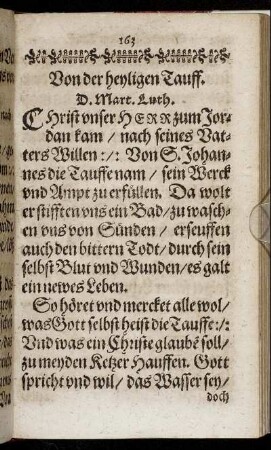 163
Von der heyligen Tauff.
D. Mart. Luth.
CHrist vnser HERR zum Jor-
dan kam / nach seines Vat-
ters Willen :/: Von S. Johan-
nes die Tauffe nam / sein Werck
vnd Ampt zu erfüllen. Da wolt
er stifften vns ein Bad / zu wasch-
en vns von Sünden / erseuffen
auch den bittern Todt / durch sein
selbst Blut vnd Wunden / es galt
ein newes Leben.
So höret vnd mercket alle wol /
was Gott selbst heist die Tauffe :/:
Vnd was ein Christe glaubē soll /
zu meyden Ketzer Hauffen. Gott
spricht vnd wil / das Wasser sey /
doch